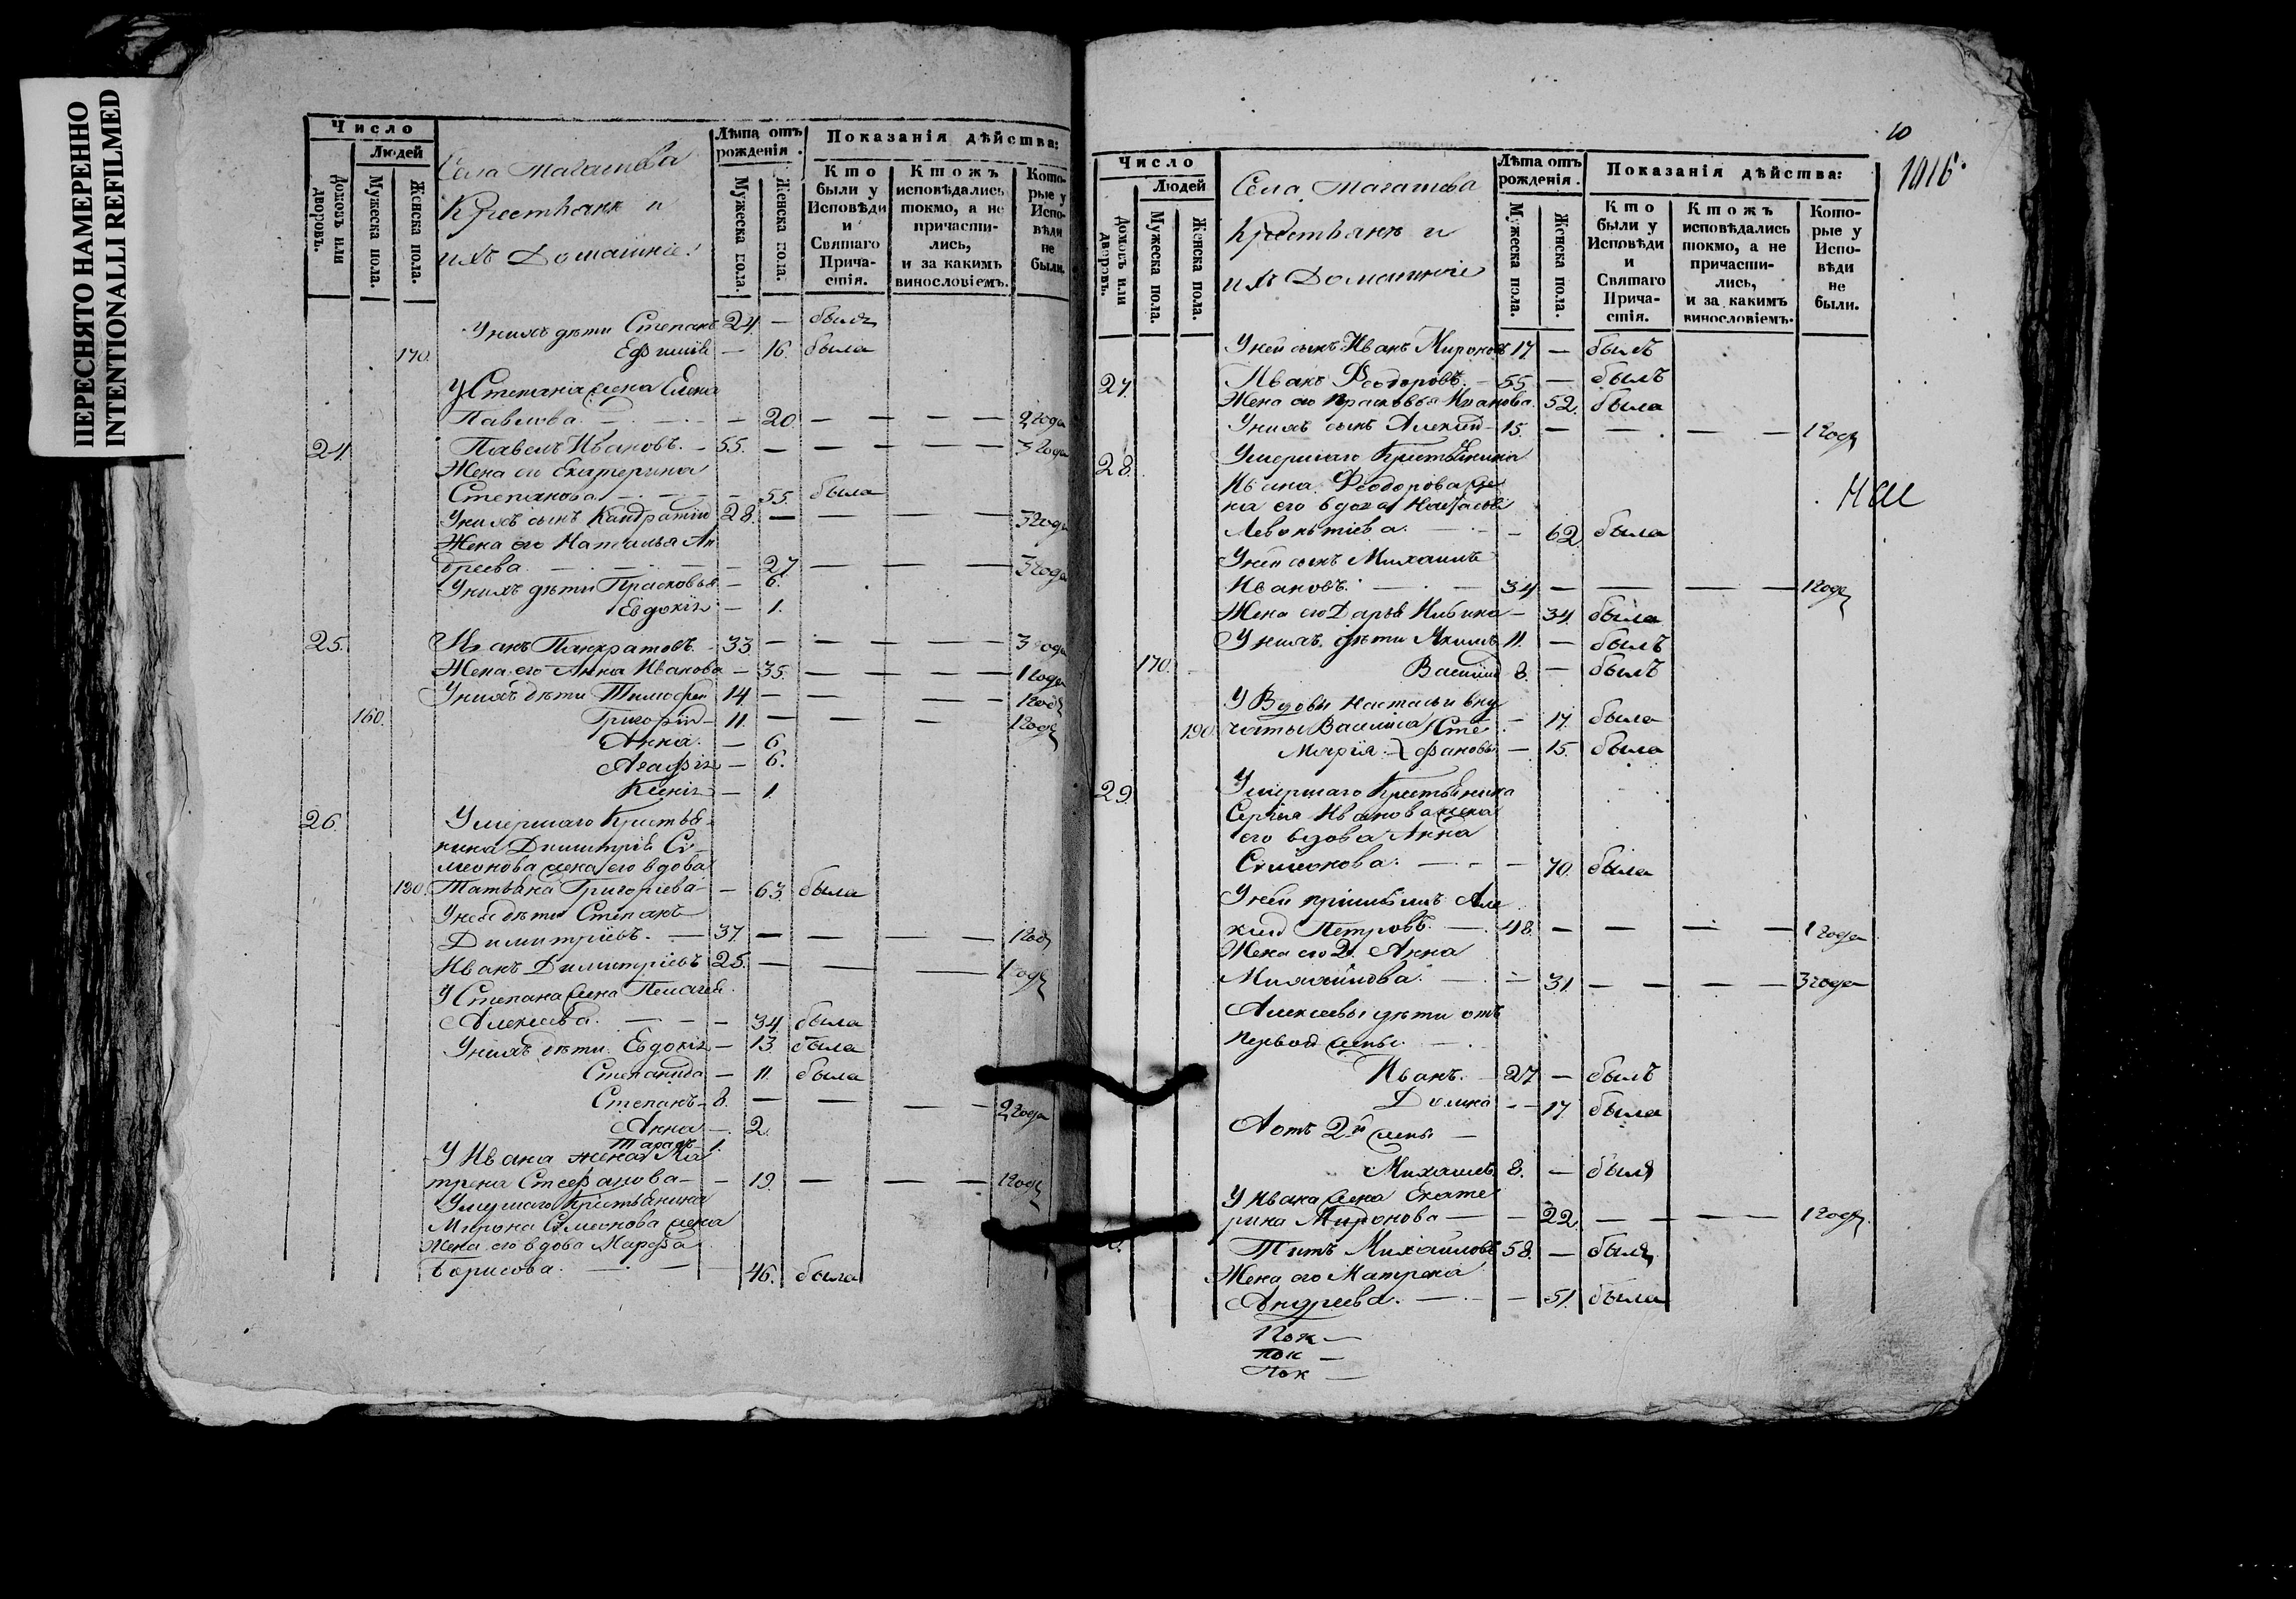 ПЕРЕСНЯТО НАМЕРЕННО
INTENTIONALLI REFILMED
Число
Людей
домовъ или дворовъ.
Мужеска пола.
Женска пола.
Села
Крестьяне и
ихъ Домашніе:
Лѣта отъ рожденія.
Мужеска пола.
Женска пола.
Показанія дѣйства:
Кто были у Исповѣди и Святаго Причастія.
Ктожъ исповѣдались токмо, а не причастились, и за какимъ винословіемъ.
Которые у Исповѣди не были.
У нихъ дѣти Степанъ 24. — былъ
170. Ефимія — 16. была
У Степана жена Елена
Павлова. — 20. — — — — 2 года
24. Павелъ Ивановъ. — 55. — — — — 3 года
Жена его Екатерина
Степанова — — — 55. была
У нихъ сынъ Кандратій 28. — — — 3 года
Жена его Наталья Ан
дреева. — — — 27 — — — 3 года
У нихъ дѣти Прасковья — 6.
Евдокія — 1.
25. Иванъ Панкратовъ. — 33 — — — — 3 года
Жена его Анна Иванова — 35. — — — — 1 года
У нихъ дѣти Тимофей 14. — — — — 1 годъ
160. Григорій — 11. — — — 1 годъ
Анна. — 6
Агафія — 6.
Ксенія — 1.
26. Умершаго Крестья-
нина Димитрія Си-
меонова жена его вдова
180. Татьяна Григорьева — — 63. была
У нея дѣти Степанъ
Димитріевъ. — 37. — — — — 1 годъ
Иванъ Димитріевъ 25. — — — 1 годъ
У Степана жена Пелагея
Алексеева. — — — 34. была
У нихъ дѣти Евдокія — 13. была
Степанида — 11. была
Степанъ — 8. — — — — 2 года
Анна — 2.
Тарасъ 1.
У Ивана жена Ма
трена Стефанова — — 19. — — — 1 годъ
Умершаго Крестьянина
Мирона Симеонова жена
Жена его вдова Марфа
Борисова. — — 46. была
10
1016.
Число
Людей
домовъ или дворовъ.
Мужеска пола.
Женска пола.
Села
Крестьяне и
ихъ Домашніе
Лѣта отъ рожденія.
Мужеска пола.
Женска пола.
Показанія дѣйства:
Кто были у Исповѣди и Святаго Причастія.
Ктожъ исповѣдались токмо, а не причастились, и за какимъ винословіемъ.
Которые у Исповѣди не были.
У ней сынъ Иванъ Мироновъ 17. — былъ
27. Иванъ Феодоровъ. — 55. — былъ
Жена его Прасковья Иванова. 52. была
У нихъ сынъ Алексѣй — 15. — — — — 1 годъ
28. Умершаго Крестьянина
Ивана Феодорова же
на его вдова Настасья
Левонтіева. — — 62. была
У ней сынъ Михаилъ
Ивановъ. — — 34 — — — — 1 годъ
Жена его Дарья — 34. была
У нихъ дѣти Якимъ 11. — былъ
170. Василій 8. — былъ
У Вдовы Настасьи вну
190. чаты Василиса Сте — 17. была
Марія. фановы — 15. была
29. Умершаго Крестьянина
Сергія Иванова жена
его вдова Анна
Симеонова. — — — 70. была
У ней пріимышъ Але
ксей Петровъ. — 48. — — — — 1 года
Жена его 2я Анна
Михайлова. — — 31. — — — — 3 года
Алексеевы дѣти отъ
первой жены. —
Иванъ. — 27 — былъ
— 17. была
А отъ 2й жены —
Михаилъ 8. — былъ
У Ивана жена Екате
рина Миронова — — 22. — — — — 1 годъ.
Титъ Михайловъ 58. — былъ
Жена его Матрена
Андреева. — — — 51. была
Пок —
пок —
Пок —